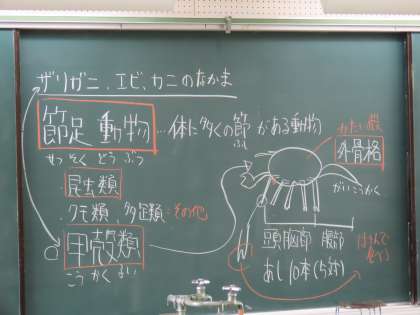 ザリガニ、エビ、カニのなかま
節足動物…体に多くの節がある動物
せっそくどうぶつ
ふし
かたい殻
外骨格
がいこっかく
昆虫類
クモ類、多足類…その他
甲殻類
こうかくるい
頭胸部 腹部
あし10本(5対)